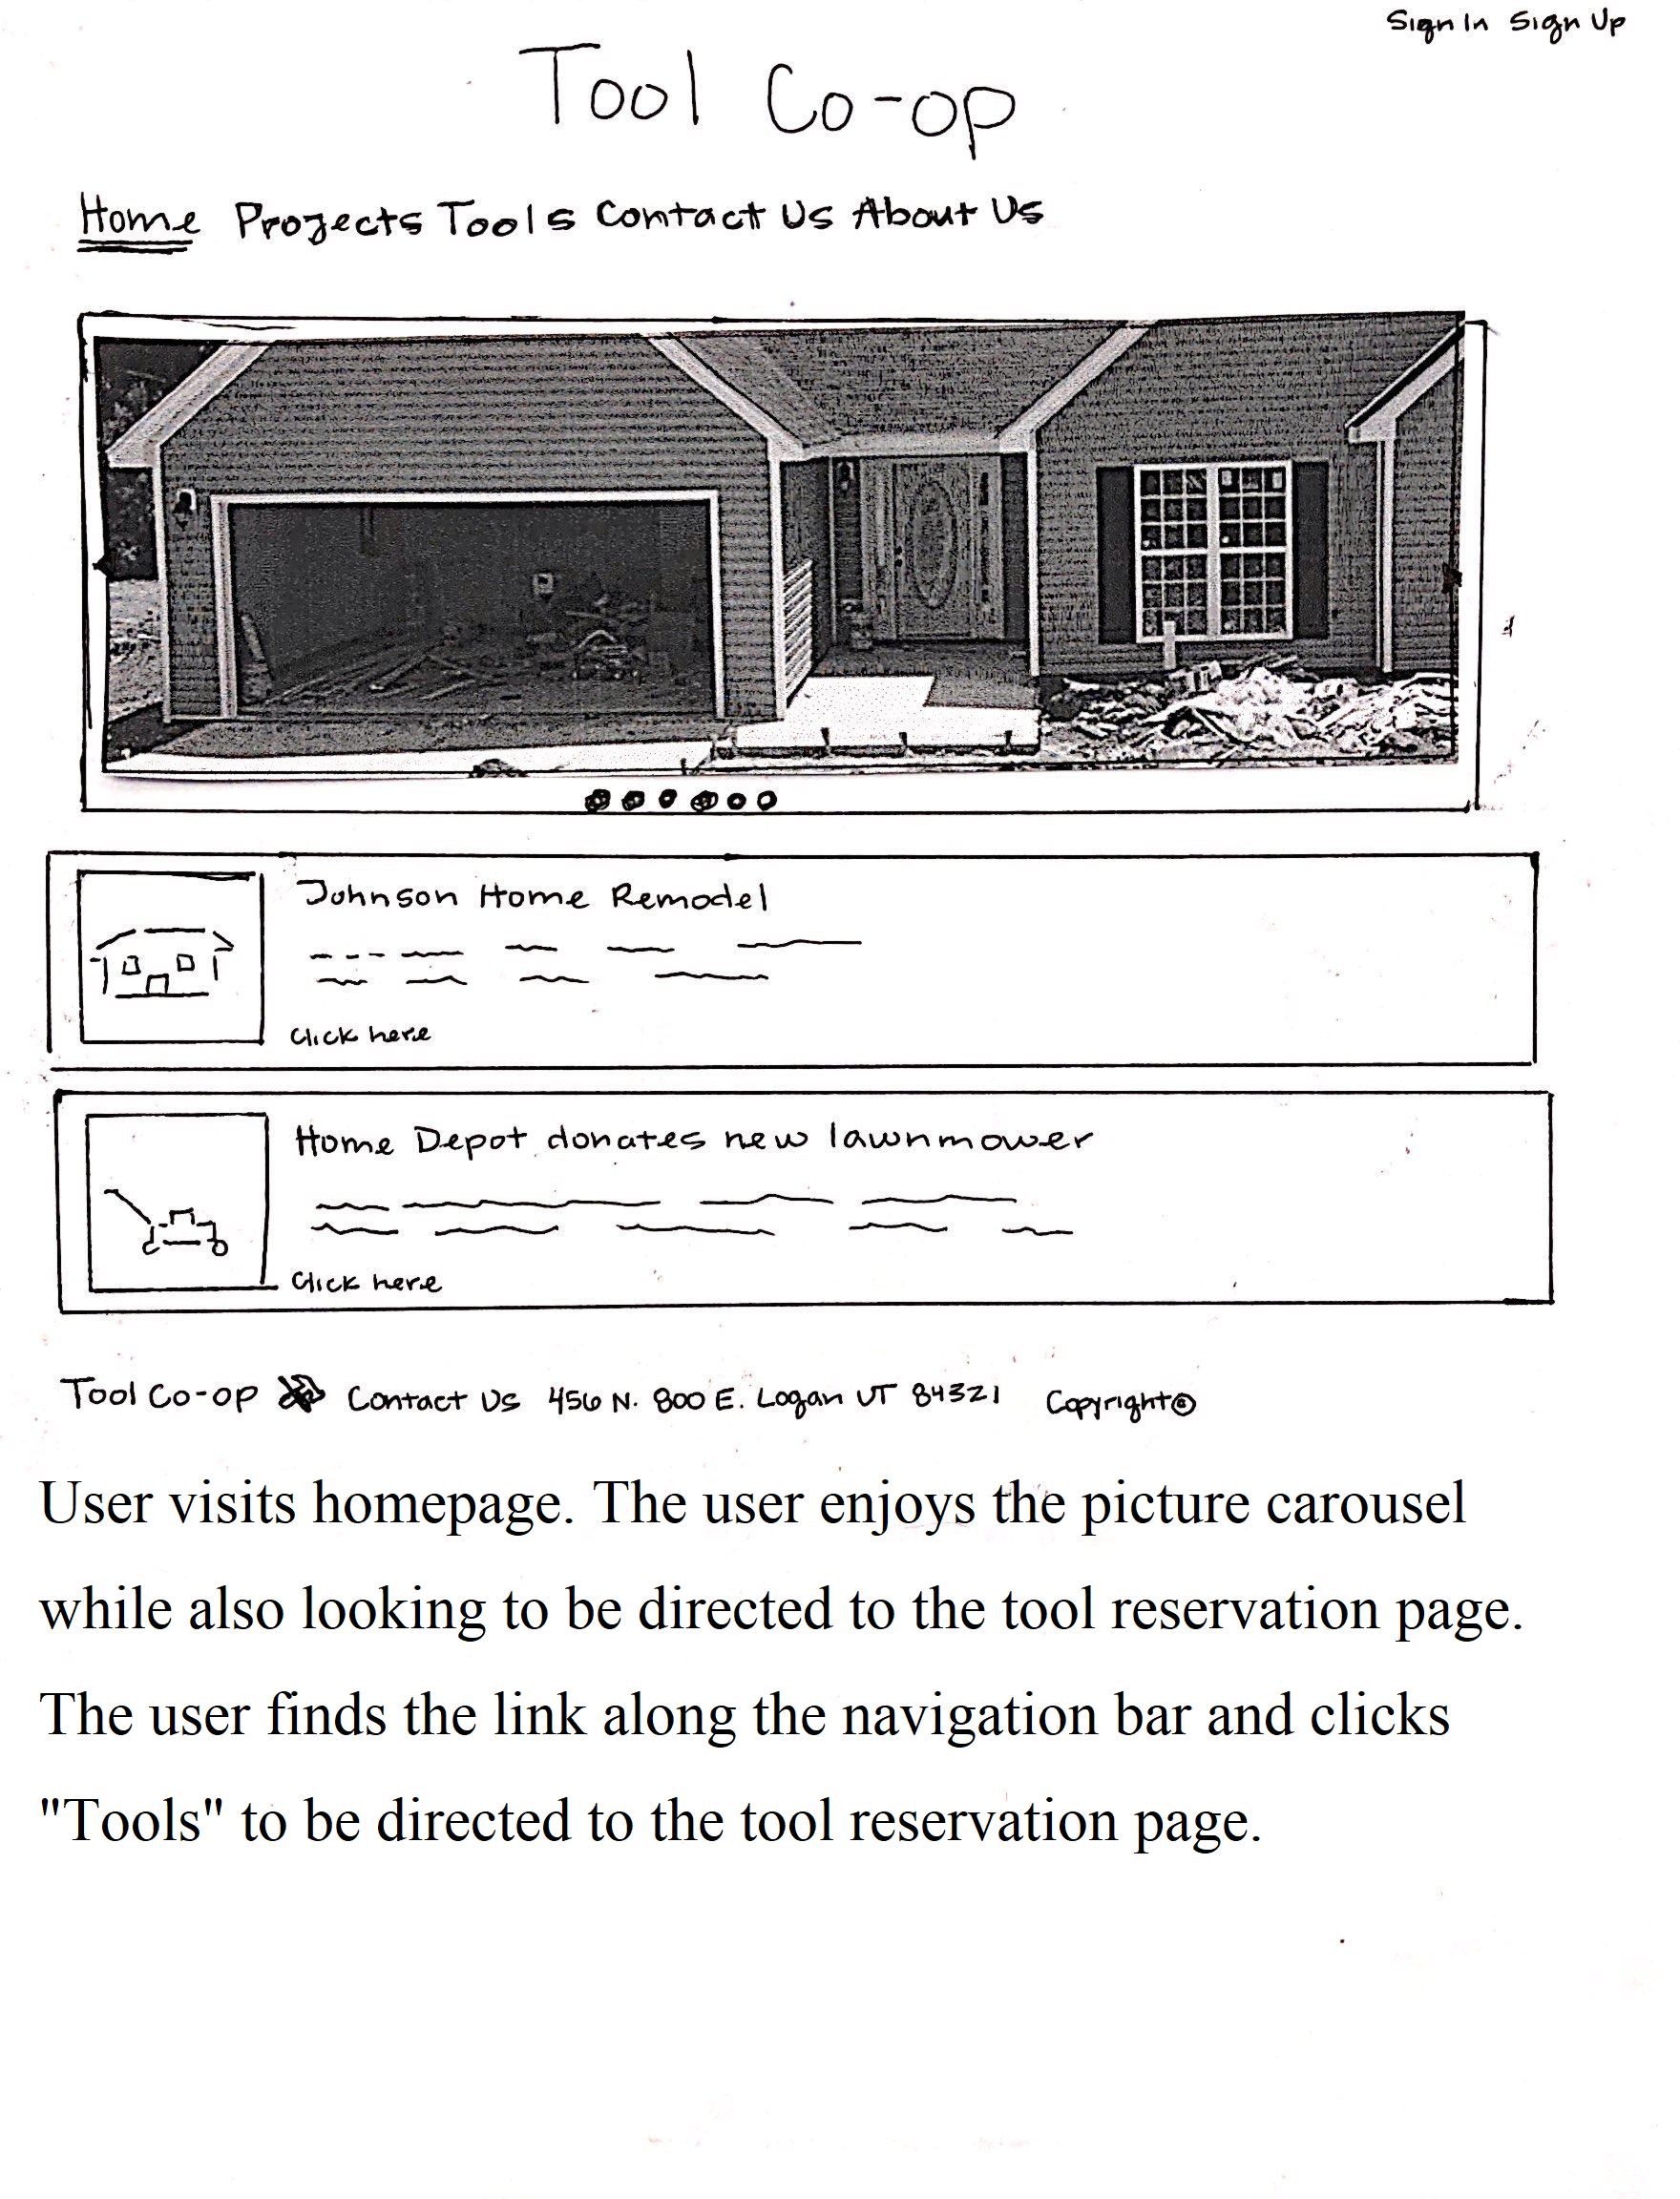 Sign In Sign Up
Tool Co-op
Home Projects Tools Contact Us About Us
Johnson Home Remodel
Click here
Home Depot donates new lawnmower
Click here
Tool Co-op Contact Us 456 N. 800 E. Logan UT 84321 Copyright©
User visits homepage. The user enjoys the picture carousel
while also looking to be directed to the tool reservation page.
The user finds the link along the navigation bar and clicks
"Tools" to be directed to the tool reservation page.